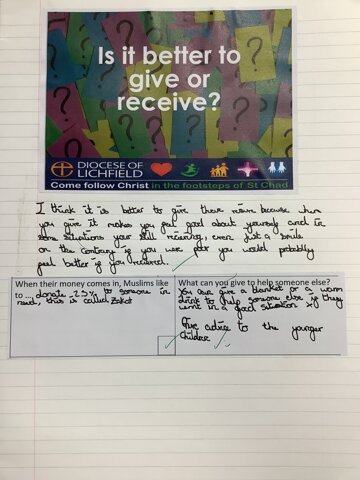 Is it better to
give or
receive?
DIOCESE OF
LICHFIELD
Come follow Christ in the footsteps of St Chad
I think it is better to give then because when
you give it makes you feel good about yourself and in
some situations your still receiving, even just a smile
on the contrary is you were poor you would probably
feel better if you received.
When their money comes in, Muslims like
to ... donate 2.5% to someone in
need, this is called Zakat
What can you give to help someone else?
You can give a blanket or a warm
drink to help someone else if they
wernt in a good situation
Give advice to the younger
Children